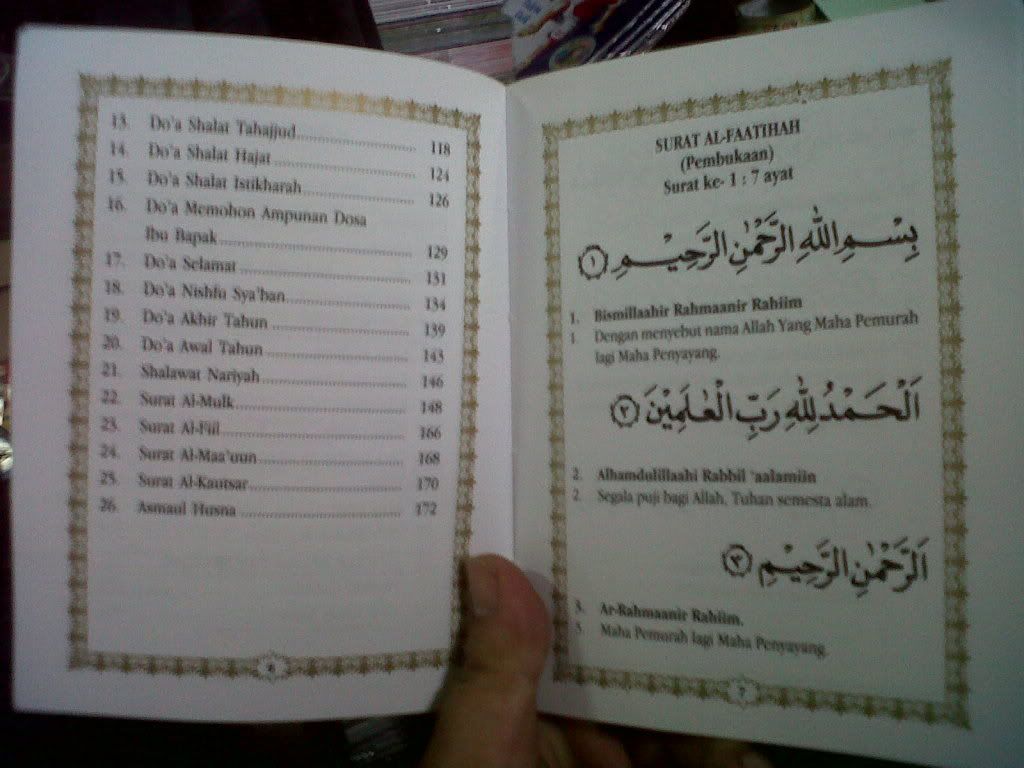 13. Do'a Shalat Tahajjud 118
14. Do'a Shalat Hajat 124
15. Do'a Shalat Istikharah 126
16. Do'a Memohon Ampunan Dosa
Ibu Bapak 129
17. Do'a Selamat 131
18. Do'a Nishfu Sya'ban 134
19. Do'a Akhir Tahun 139
20. Do'a Awal Tahun 143
21. Shalawat Nariyah 146
22. Surat Al-Mulk 148
23. Surat Al-Fiil 166
24. Surat Al-Maa'uun 168
25. Surat Al-Kautsar 170
26. Asmaul Husna 172
6
SURAT AL-FAATIHAH
(Pembukaan)
Surat ke- 1 : 7 ayat
بِسْمِ اللهِ الرَّحْمٰنِ الرَّحِيْمِ ١
1. Bismillaahir Rahmaanir Rahiim
1. Dengan menyebut nama Allah Yang Maha Pemurah
lagi Maha Penyayang.
اَلْحَمْدُ لِلّٰهِ رَبِّ الْعٰلَمِيْنَ ٢
2. Alhamdulillaahi Rabbil 'aalamiin
2. Segala puji bagi Allah, Tuhan semesta alam.
اَلرَّحْمٰنِ الرَّحِيْمِ ٣
3. Ar-Rahmaanir Rahiim.
3. Maha Pemurah lagi Maha Penyayang.
7